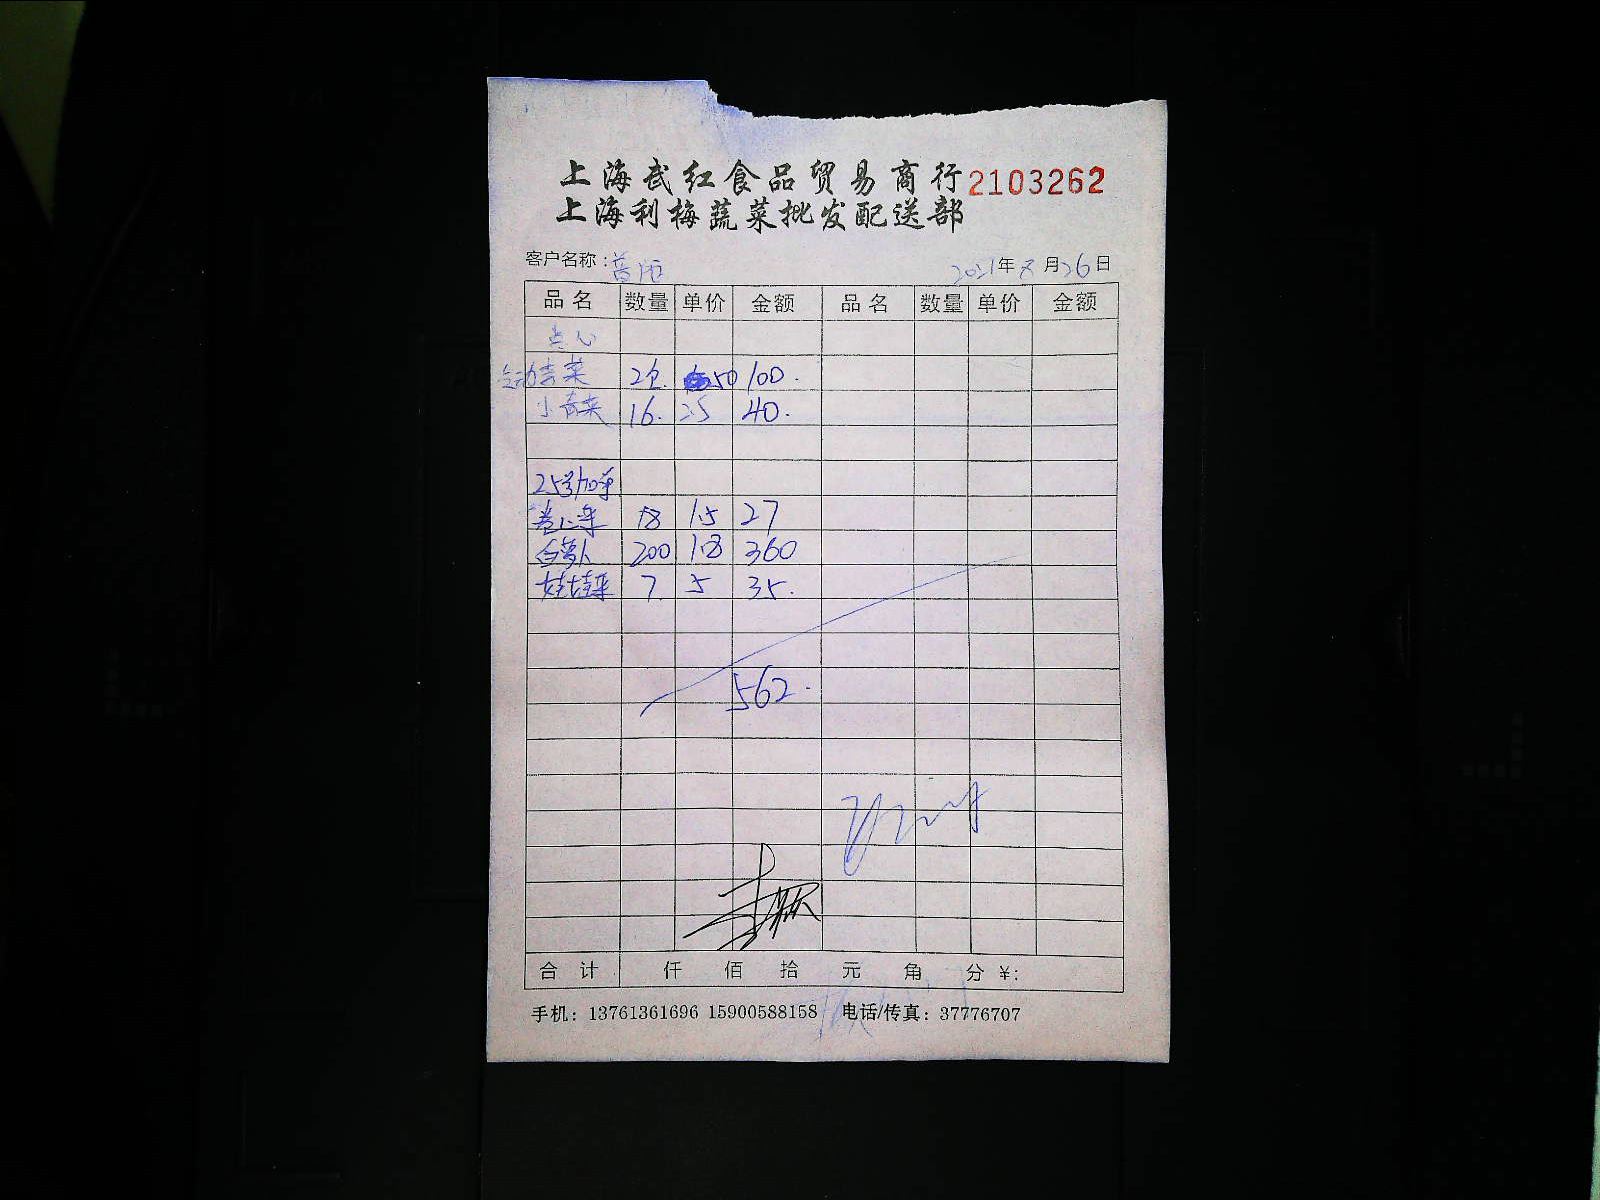 上海武红食品贸易商行 2103262
上海利梅蔬菜批发配送部
客户名称: 2021年8月26日
品名 数量 单价 金额 品名 数量 单价 金额
点心
菜 2包. 50 100.
小青菜 16. 2.5 40.
25号加单
卷心菜 18 1.5 27
白萝卜 200 1.8 360
娃娃菜 7. 5 35.
562.
合计 仟 佰 拾 元 角 分 ¥:
手机: 13761361696 15900588158 电话/传真: 37776707